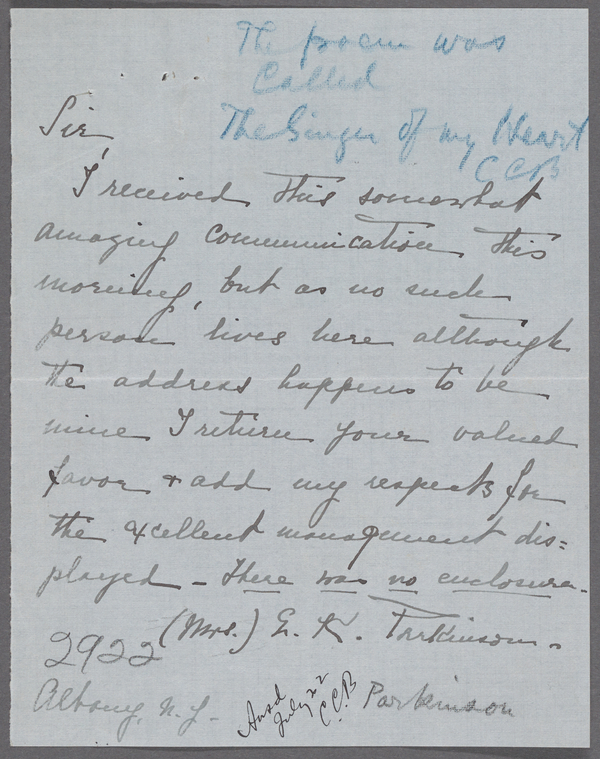 The poem was
Called
The Singer of my Heart
C C B
Sir,
I received this somewhat
amazing communication this
morning, but as no such
person lives here although
the address happens to be
mine I return your valued
favor & add my respects for
the excellent management dis=
played - There was no enclosure.
(Mrs.) E. K. Parkinson.
2922
Albany, N.Y.
Ansd
July 22
C.C.B
Parkinson